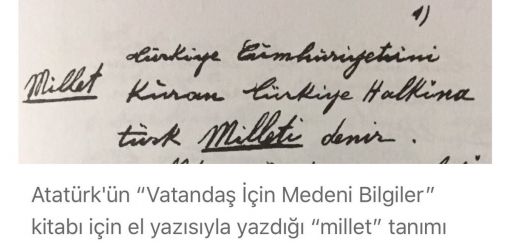 1)
Türkiye Cümhuriyetini
Millet Kuran Türkiye Halkına
türk Milleti denir.
Atatürk'ün “Vatandaş İçin Medeni Bilgiler”
kitabı için el yazısıyla yazdığı “millet” tanımı